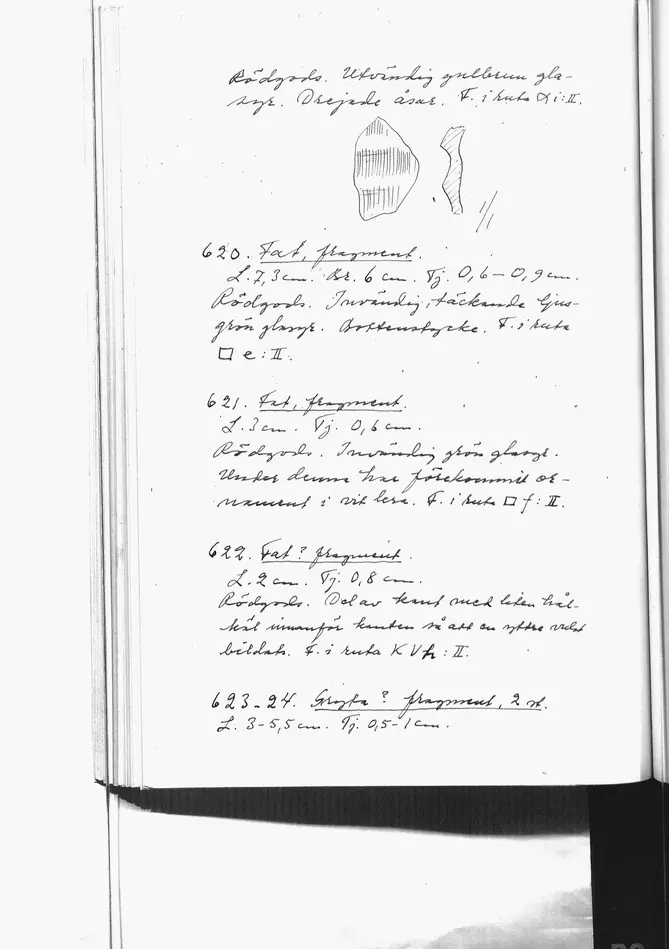 Rödgods. Utvändig gulbrun gla-
syr. Drejade åsar. F. i ruta α i : II.
1/1
620. Fat, fragment.
L. 7,3 cm. Br. 6 cm. Tj. 0,6 – 0,9 cm.
Rödgods. Invändig, täckande ljus-
grön glasyr. Bottenstycke. F. i ruta
□ e : II.
621. Fat, fragment.
L. 3 cm. Tj. 0,6 cm.
Rödgods. Invändig grön glasyr.
Under denna har förekommit or-
nament i vit lera. F. i ruta □ f : II.
622. Fat ? fragment.
L. 2 cm. Tj. 0,8 cm.
Rödgods. Del av kant med liten hål-
käl innanför kanten så att en yttre vulst
bildats. F. i ruta K V h : II.
623-24. Gryta ? fragment, 2 st.
L. 3-5,5 cm. Tj. 0,5-1 cm.